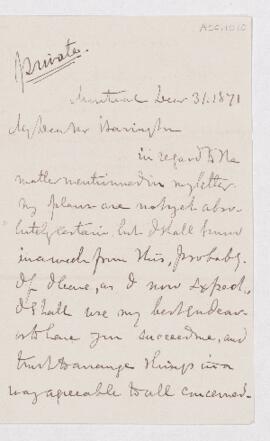 Private.
Montreal Decr 31. 1871
My Dear Mr Harrington
in regard to the
matter mentioned in my letter
my plans are not yet abso-
lutely certain but I shall know
in a week from this, probably.
If I leave, as I now expect,
I shall use my best endeav-
or to have you succeed me, and
trust to arrange things in a
way agreeable to all concerned.